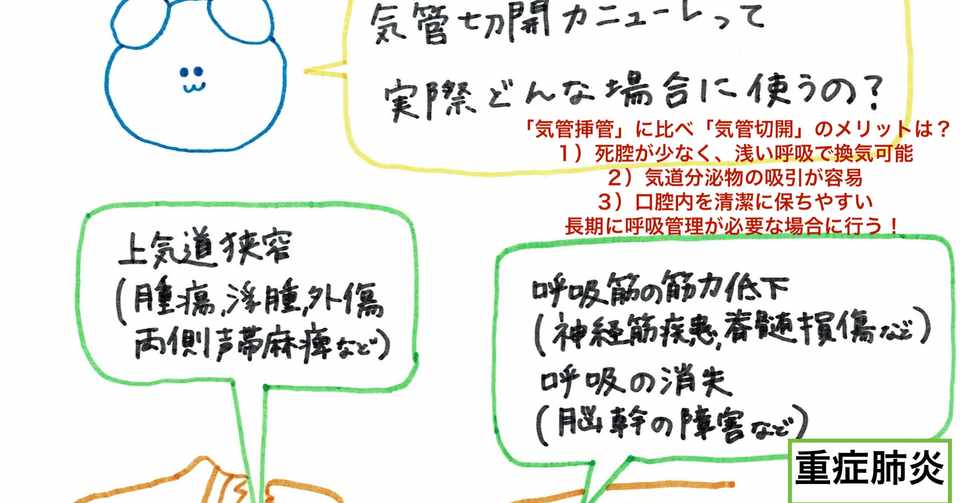 気管切開カニューレって
実際どんな場合に使うの?
「気管挿管」に比べ「気管切開」のメリットは？
１）死腔が少なく、浅い呼吸で換気可能
２）気道分泌物の吸引が容易
３）口腔内を清潔に保ちやすい
長期に呼吸管理が必要な場合に行う！
上気道狭窄
(腫瘍,浮腫,外傷
両側声帯麻痺など)
呼吸筋の筋力低下
(神経筋疾患,脊髄損傷など)
呼吸の消失
(脳幹の障害など)
重症肺炎